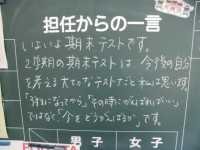 担任からの一言
いよいよ期末テストです。
2学期の期末テストは今後の自分
を考える大切なテストだと私は思います。
「3年になってから」「その時にがんばればいい」
ではなく「今をどうがんばるか」です。
男子 女子